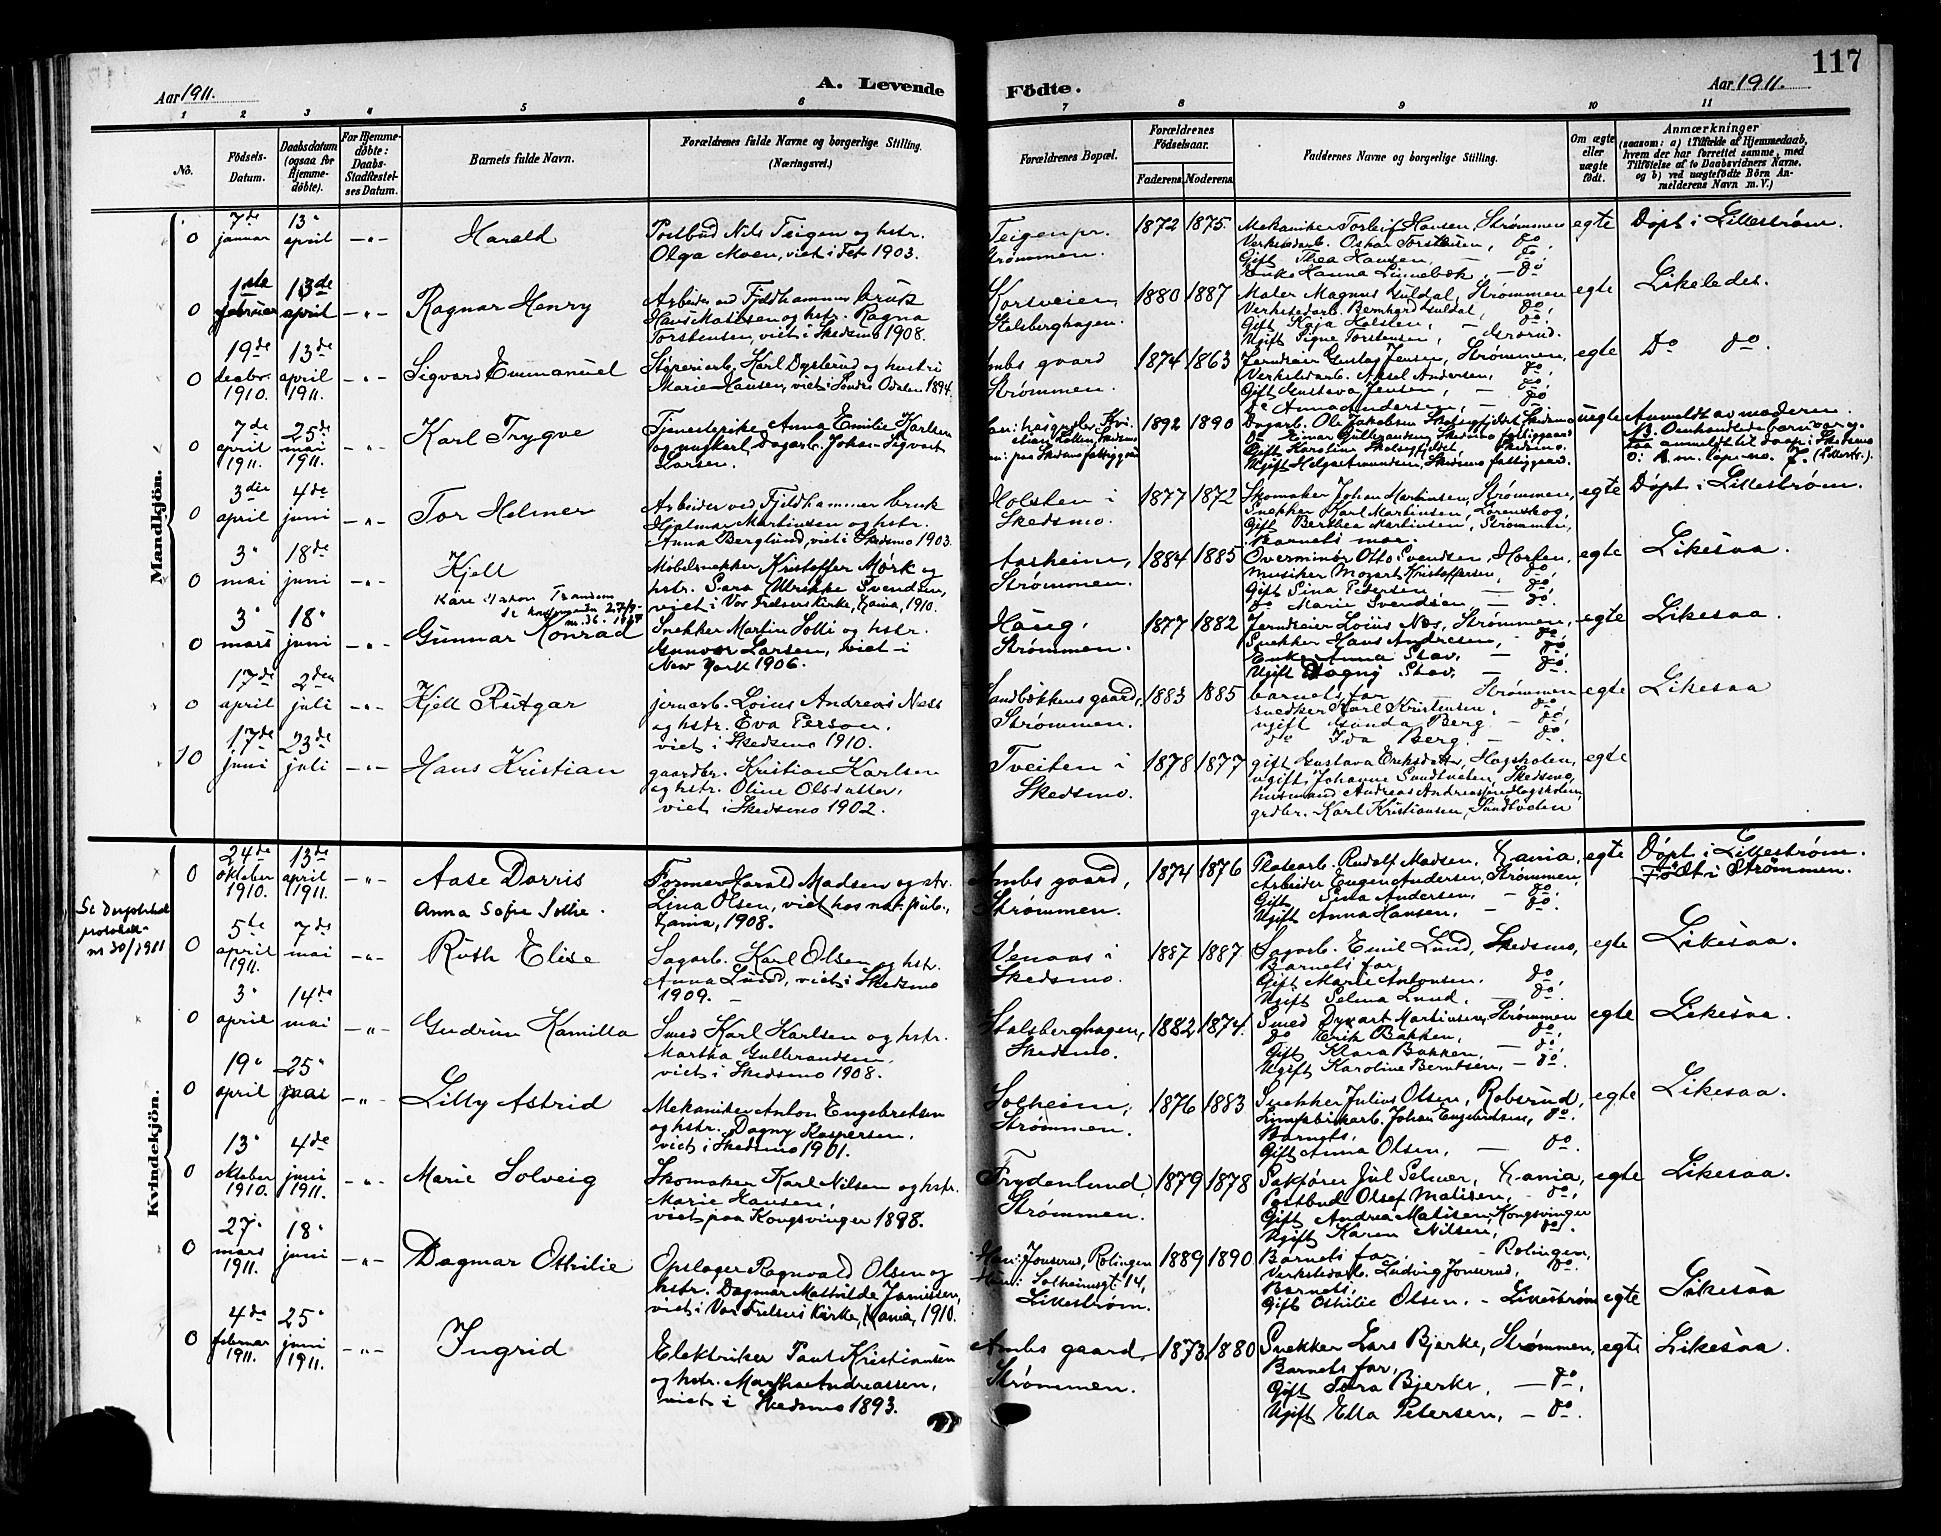 117
Aar 1911.
A. Levende Födte.
Aar 1911.
1 2 3 4 5 6 7 8 9 10 11
No.
Födsels-Datum.
Daabsdatum (ogsaa för Hjemme-döbte).
For Hjemme-döbte: Daabs-Stadfæstel-ses Datum.
Barnets fulde Navn.
Forældrenes fulde Navne og borgerlige Stilling. (Næringsvei.)
Forældrenes Bopæl.
Forældrenes Födselsaar.
Faderens Moderens
Faddernes Navne og borgerlige Stilling.
Om ægte eller uægte födt.
Anmærkninger
(saasom: a) i Tilfælde af Hjemmedaab, hvem der har forrettet samme, med Tilföielse af to Daabsvidners Navne, og b) ved uægtefödte Börn An-melderens Navn m. V.)
Mandkjön.
0 7de januar 13. april Harald
Postbud Nils Teigen og hstr.
Olga Moen, viet i Fet 1903.
Teigen pr. Strømmen. 1872 1875.
Mekaniker Torleif Hansen, Strømmen
Verkstedarb. Oskar Torstensen, do.
Gift Thea Hansen, do.
Enke Hanna Linnebæk, - do.
egte Døpt i Lillestrøm.
0 1ste februar 13de april Ragnar Henry
Arbeider ved Fjeldhammer bruk
Hans Matisen og hstr. Ragna
Torstensen, viet i Skedsmo 1908.
Korsveien, Stalsberghagen. 1880 1887
Maler Magnus Guldal, Strømmen
Verkstedarb. Bernhard Guldal, do.
Gift Kaja Holsten, - do.
Ugift Signe Torstensen, Grorud.
egte Likeledes.
0 19de decbr. 1910. 13de april 1911. Sigvard Emmanuel
Støperiarb. Karl Dysterud og hustru
Marie Hansen, viet i Søndre Odalen 1894.
Ambs gaard Strømmen. 1874 1863
Jerndreier Gustav Jensen, Strømmen,
Verkstedarb. Aksel Andersen, do.
Gift Gustava Jensen, - do
Do Anna Andersen, - do.
egte Do do.
0 7de april 1911. 25de mai 1911. Karl Trygve
Tjenestepike Anna Emilie Karlsen
og ungkarl, Dagarb. Johan Sigvart
Larsen.
1892 1890
Dagarb. Ole Jakobsen Skolsegfjeldet, Skedsmo
Do Einar Gulbrandsen, Skedsmo fattiggaard
Gift Karoline Skolsegfjeldet, Skedsmo.
Ugift Helga Amundsen, Skedsmo fattiggaard.
uegte Anmeldt av moderen.
0 3die april 4de juni Tor Helmer
Arbeider ved Fjeldhammer bruk
Hjalmar Martinsen og hstr.
Anna Berglund, viet i Skedsmo 1903.
Holsten i Skedsmo. 1877 1872
Skomaker Johan Martinsen, Strømmen,
Snekker Karl Martinsen, Lørenskog,
Gift Berthea Martinsen, Strømmen,
Barnets mor.
egte Døpt i Lillestrøm.
0 3. mai 18de juni Kjell
Møbelsnekker Kristoffer Mørk og
hstr. Sara Ulrikke Svendsen,
viet i Vor Frelsers Kirke, Kania, 1910.
Aasheim, Strømmen. 1884 1885
Overminør Otto Svendsen, Horten,
Musiker Mozart Kristoffersen, do.
Gift Sina Petersen, - do.
do Marie Svendsen - do.
egte Likesaa.
0 3. mars 18. juni Gunnar Konrad
Snekker Martin Solli og hstr.
Gunvor Larsen, viet i
New York 1906.
Haug, Strømmen. 1877 1882
Jerndreier Loius Nes, Strømmen,
Snekker Hans Andresen, - do.
Enke Anna Stav, - do.
Ugift Dagny Stav, - do.
egte Likesaa
0 17de april 2den juli Kjell Rutgar
jernarb. Loius Andreas Ness
og hstr. Eva Person,
viet i Skedsmo 1910.
Sandbækkens gaard, Strømmen. 1883 1885
barnets far - Strømmen
snedker Karl Kristensen, do.
ugift Gunda Berg - do.
do Ida Berg. - do.
egte Likesaa
10 17de juni 23de juli Hans Kristian
gaardbr. Kristian Karlsen
og hstr. Oline Olsdatter,
viet i Skedsmo 1902.
Tveiten i Skedsmo. 1878 1877
gift Gustava Eriksdatter, Hagsholen,
ugift Johanne Sundtveten, Skedsmo,
husmand Andreas Andreassen Hagsholen,
grdbr. Karl Kristiansen, Sundtveten
egte
Kvindekjön.
0 24de oktober 1910. 13de april 1911. Aase Dorris
Anna Sofie Sothe.
Former Harald Madsen og str.
Lina Olsen, viet hos not. publ.,
Kania, 1908.
Ambs gaard, Strømmen. 1874 1876
Platearb. Rudolf Madsen, Kania,
Arbeider Eugen Andersen, Strømmen,
Gift Sina Andersen, - do.
Ugift Anna Hansen, - do.
egte Døpt i Lillestrøm.
Født i Strømmen.
Se Daapsprotokol nr 30/1911
0 5te april 1911. 7de mai Ruth Elise
Sagarb. Karl Olsen og hstr.
Anna Lund, viet i Skedsmo
1909.
Venaas i Skedsmo. 1887 1887.
Sagarb. Emil Lund, Skedsmo,
Barnets far,
Gift Marie Antonsen, do.
Ugift Selma Lund, - do.
egte Likesaa.
0 3. april 14de mai Gudrun Kamilla
Smed Karl Karlsen og hstr.
Martha Gulbrandsen,
viet i Skedsmo 1908.
Stalsberghagen, Skedsmo. 1882 1874.
Smed Dyvart Martinsen, Strømmen
do Erik Bakken, do.
Gift Klara Bakken, - do.
Ugift Karoline Berntsen, - do.
egte Likesaa.
0 19. april 25. mai Lilly Astrid
Mekaniker Anton Engebretsen
og hstr. Dagny Kaspersen,
viet i Skedsmo 1901.
Solheim, Strømmen. 1876 1883
Snekker Julius Olsen, Robsrud,
Johan Engebretsen, do.
Barnets,
Gift Anna Olsen, - do.
egte Likesaa.
0 13. oktober 1910. 4de juni 1911. Marie Solveig
Skomaker Karl Nilsen og hstr.
Marie Hansen,
viet paa Kongsvinger 1898.
Frydenlund, Strømmen. 1879 1878
Sakfører Jul Selmer, Kania,
Postbud Olsef Matisen, - do.
Gift Andrea Matisen, Kongsvinger
Ugift Karen Nilsen, do.
egte Likesaa.
0 27. mars 1911. 18. juni Dagmar Othilie
Opslager Ragnvald Olsen og
hstr. Dagmar Mathilde Jamissen,
viet i Vor Frelsers Kirke, Kania, 1910.
Han: Jonsrud, Rælingen
Hun: Solheimsgt. 14,
Lillestrøm. 1889 1890
Barnets far, - Rælingen,
Verkstedarb. Ludvig Jonsrud, do.
Barnets,
Gift Othilie Olsen, - Lillestrøm
egte Likesaa
0 4de februar 1911. 25. juni 1911. Ingrid
Elektriker Paul Kristiansen
og hstr. Martha Andreassen,
viet i Skedsmo 1893.
Ambs gaard, Strømmen. 1873 1880
Snekker Lars Bjerke, Strømmen,
Barnets far,
Gift Tora Bjerke, - do.
Ugift Ella Petersen, - do.
egte Likesaa.